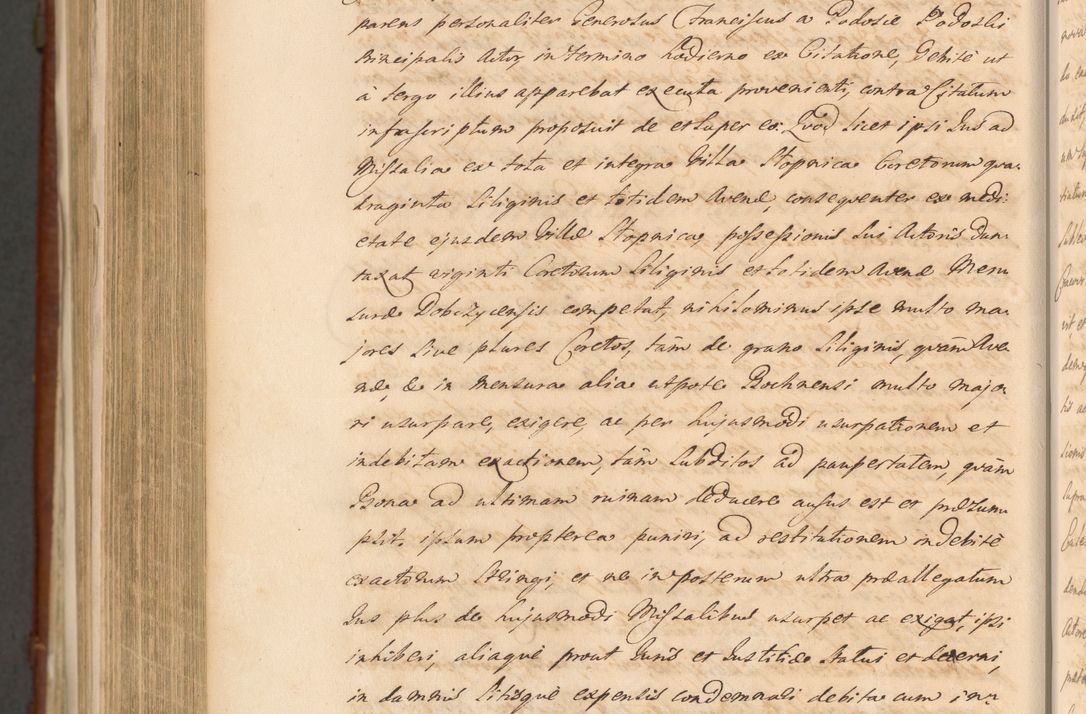 parens personaliter Generosus Franciscus a Podosie Podoski
Principalis Actor, in termino hodierno ex Citatione, debitè ut
à tergo illius apparebat executa provenienti, contra Citatum
infrascriptum proposuit de et super eo. Quod licet ipsi Jus ad
Missalia ex tota et integra Villa Stopnica Coretorum qua-
draginta Siliginis et totidem Avenæ, consequenter ex medi-
etate ejusdem Villæ Stopnica possessionis sui Actoris dun-
taxat viginti Coretorum Siliginis et totidem Avenæ Mensu
suræ Dobczycensis competat, nihilominus ipse multo ma-
jores sive plures Coretos, tàm de grano Siliginis, quàm Ave-
næ, & in mensura alia utpote Bochnensi multo majo-
ri usurpare, exigere, ac per hujusmodi usurpationem et
indebitam exactionem, tàm Subditos ad paupertatem, quàm
Bona ad ultimam ruinam deducere ausus est et præsum-
psit. ipsum propterea puniri, ad restitutionem indebitè
exactorum stringi, et ne in posterum ultra præallegatum
Jus plus de hujusmodi Missalibus usurpet ac exigat, ipsi
inhiberi, aliaquè prout Juris et Justitiæ Statui et decerni,
in damnis litisquè expensis condemnari debita cum in-